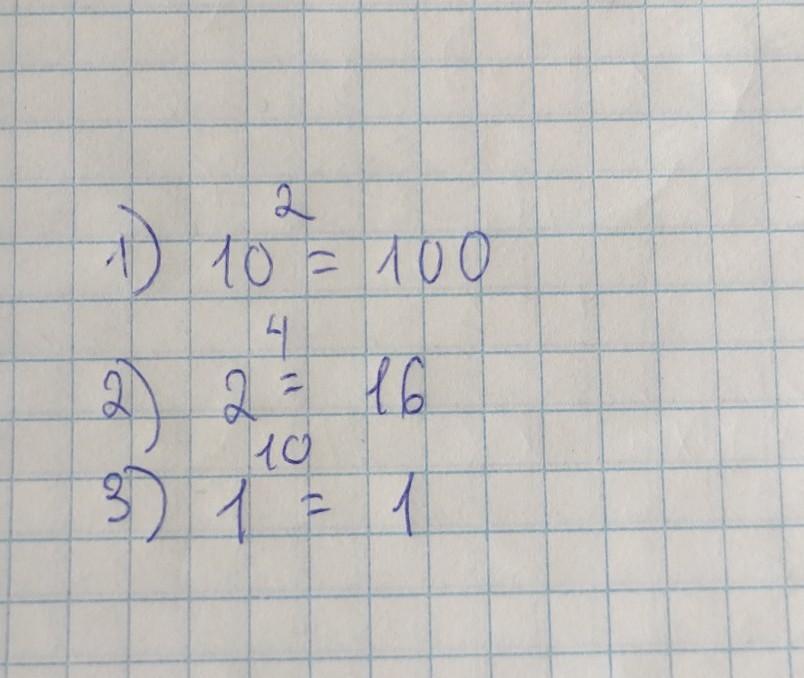 1) 10² = 100
2) 2⁴ = 16
3) 1¹⁰ = 1